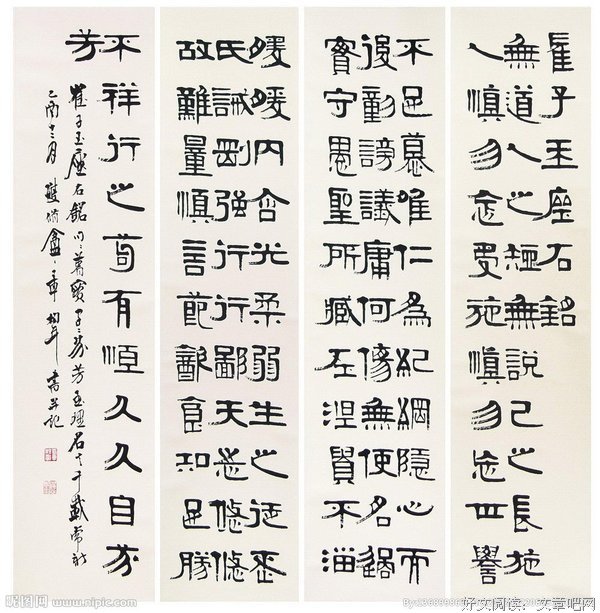 崔子玉座右銘
無道人之短無說己之長施
人慎勿念受施慎勿忘世譽
不足慕唯仁為紀綱隱心而
後動謗議庸何傷無使名過
實守愚聖所臧在涅貴不淄
曖曖內含光柔弱生之徒老
氏誡剛強行行鄙夫志悠悠
故難量慎言節飲食知足勝
不祥行之苟有恆久久自芬
芳
崔子玉座右銘
乙酉十二月
書並記
昵图网 www.nipic.com
好文阅读：文章吧网